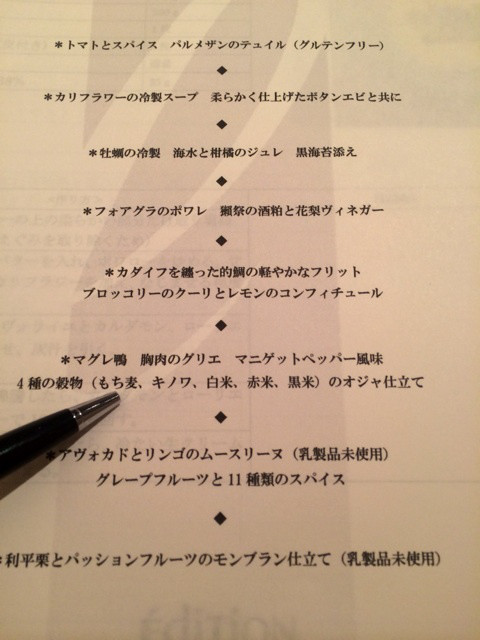 *トマトとスパイス　パルメザンのテュイル（グルテンフリー）
◆
*カリフラワーの冷製スープ　柔らかく仕上げたボタンエビと共に
◆
*牡蠣の冷製　海水と柑橘のジュレ　黒海苔添え
◆
*フォアグラのポワレ　獺祭の酒粕と花梨ヴィネガー
◆
*カダイフを纏った的鯛の軽やかなフリット
ブロッコリーのクーリとレモンのコンフィチュール
◆
*マグレ鴨　胸肉のグリエ　マニゲットペッパー風味
4種の穀物（もち麦、キノワ、白米、赤米、黒米）のオジャ仕立て
◆
*アヴォカドとリンゴのムースリーヌ（乳製品未使用）
グレープフルーツと11種類のスパイス
◆
*利平栗とパッションフルーツのモンブラン仕立て（乳製品未使用）